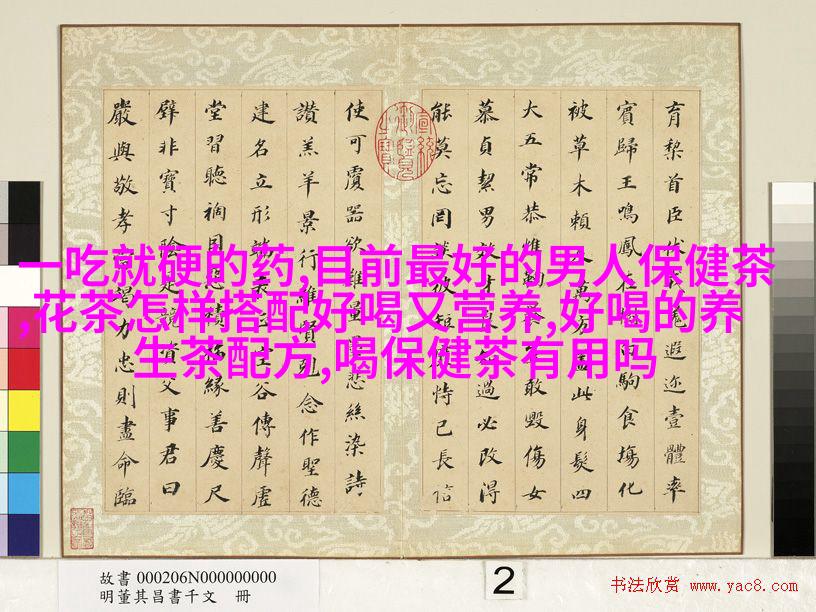 一吃就硬的药,目前最好的男人保健茶
,花茶怎样搭配好喝又营养,好喝的养
生茶配方,喝保健茶有用吗
育黎首臣伏戎羌遐迩壹體率
賓歸王鳴鳳在樹白駒食場化
被草木賴及萬方蓋此身髮四
大五常恭惟鞠養豈敢毀傷女
慕貞絜男效才良知過必改得
能莫忘罔談彼短靡恃己長信
使可覆器欲難量墨悲絲染詩
讚羔羊景行維賢剋念作聖德
建名立形端表正空谷傳聲虛
堂習聽禍因惡積福緣善慶尺
璧非寶寸陰是競資父事君曰
嚴與敬孝當竭力忠則盡命臨
故書 000206N000000000
明董其昌書千文 冊
2
书法欣赏 www.yac8.com